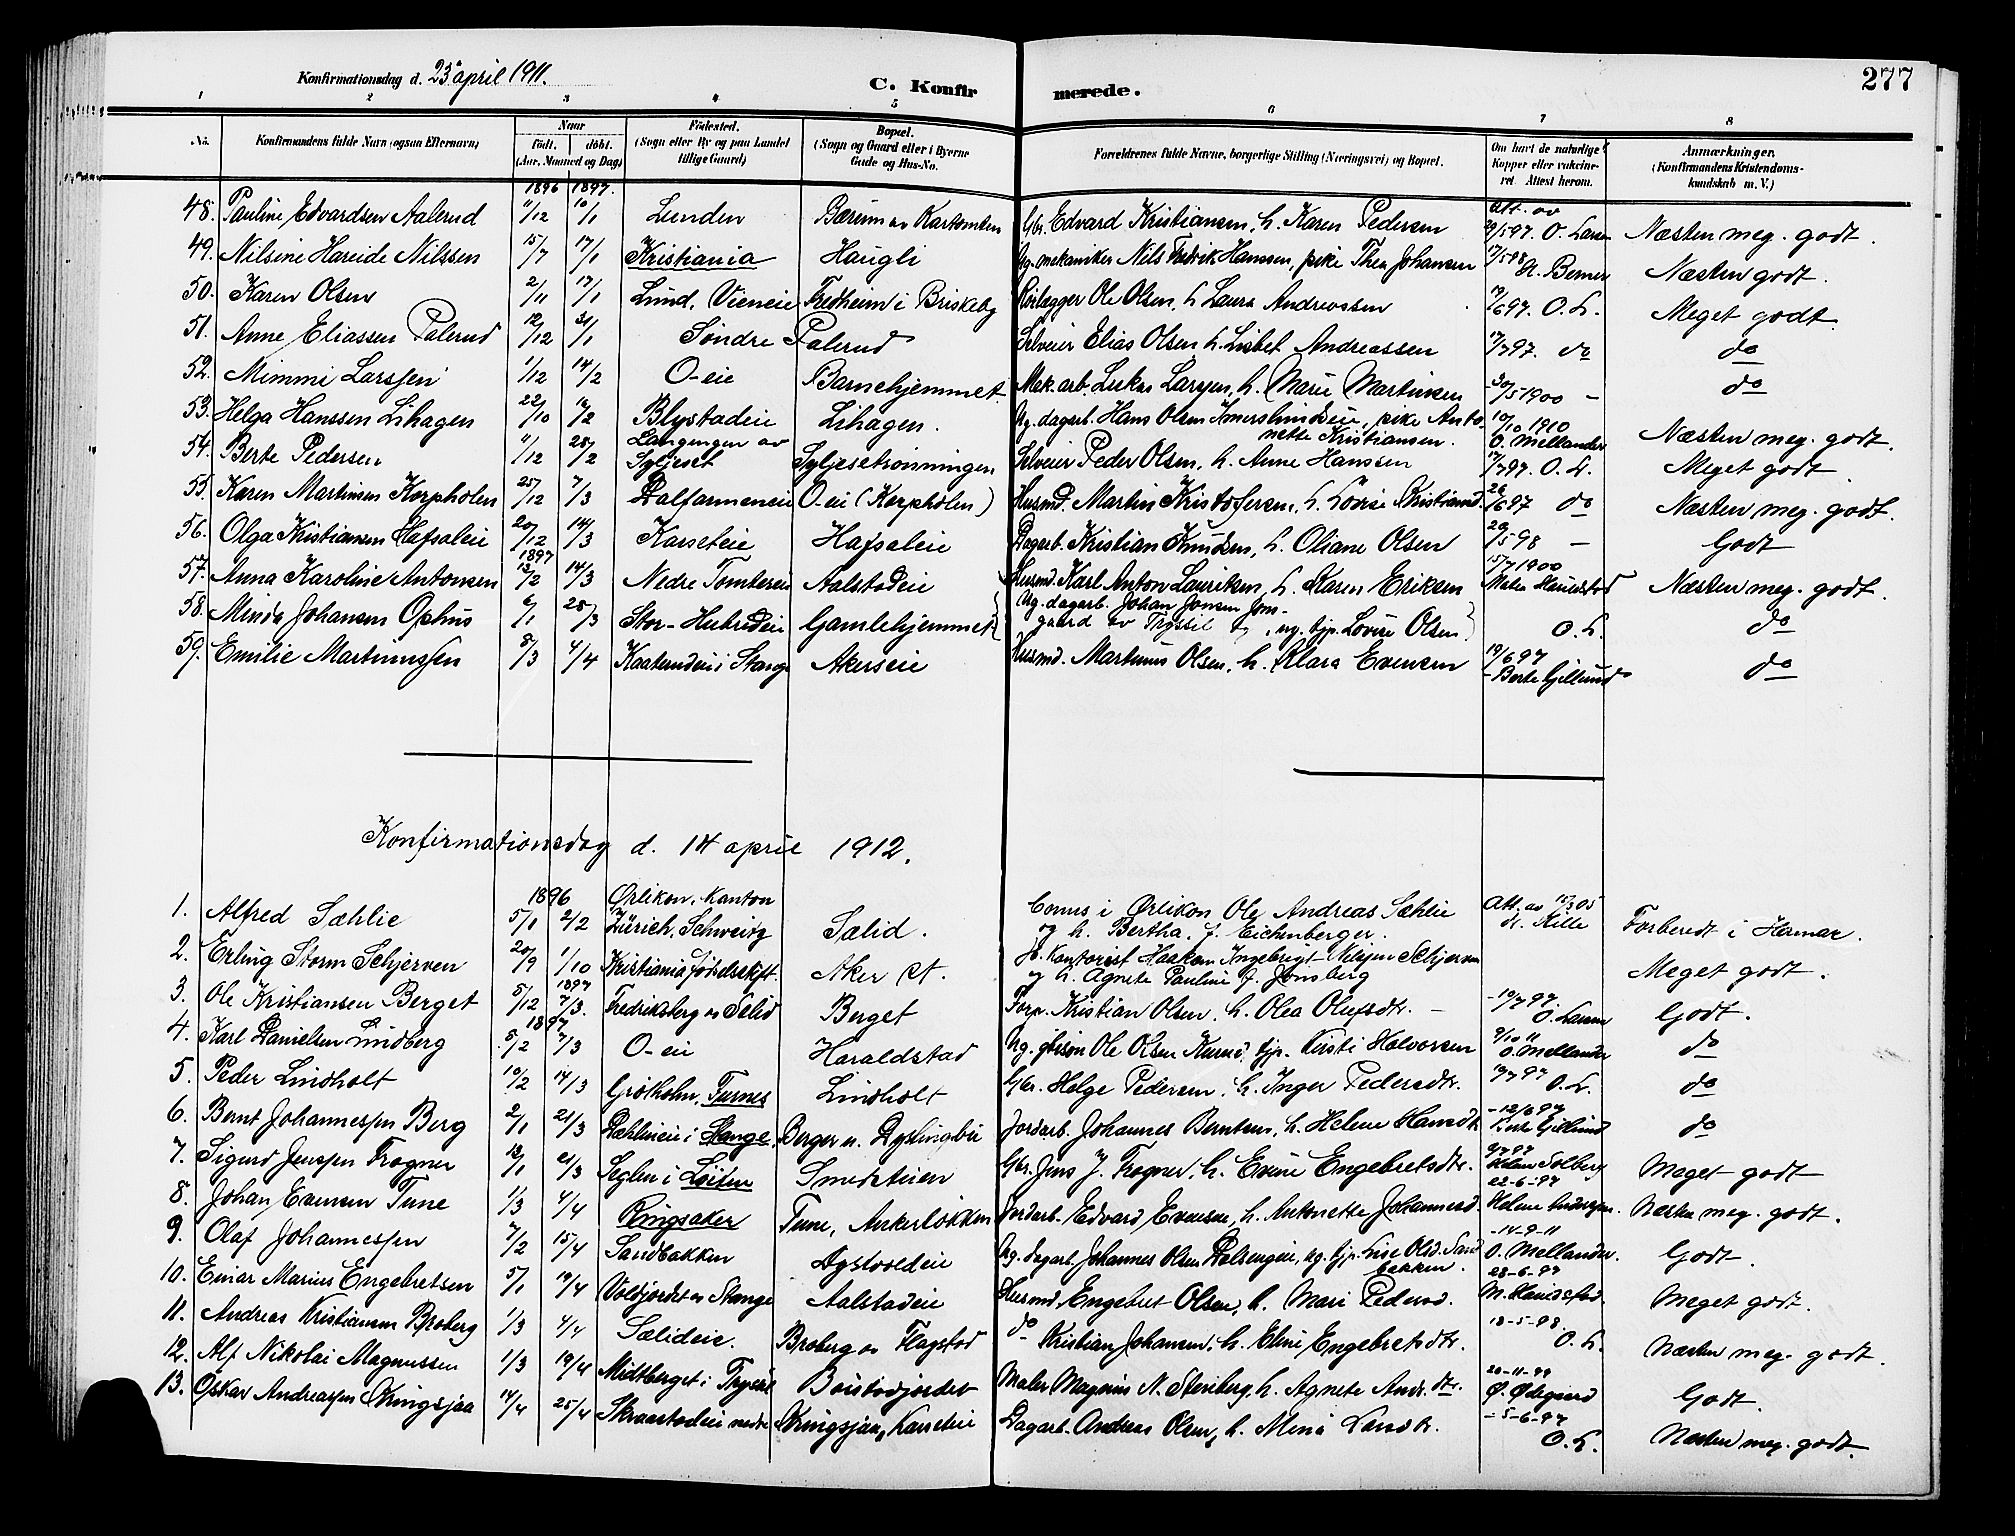 Konfirmationsdag d. 23 april 1911.
C. Konfirmerede.
277
1 2 3 4 5 6 7 8
No. Konfirmandens fulde Navn (ogsaa Efternavn) Naar Født. døbt. (Aar, Maaned og Dag) Fødested. (Sogn eller By og paa Landet tillige Gaard) Bopæl. (Sogn og Gaard eller i Byerne Gade og Hus-No. Forældrenes fulde Navne, borgerlige Stilling (Næringsvei) og Bopæl. Om havt de naturlige Kopper eller vakcineret. Attest herom. Anmærkninger. (Konfirmandens Kristendomskundskab m. V.)
1896 1897.
48. Pauline Edvardsen Aalerud 11/12 10/1 Lunden Bærum av Gbr. Edvard Kristiansen, h. Karen Pedersen Att. av 29/5 97. O. Larsen Næsten meg. godt.
49. Nilsine Hareide Nilssen 15/7 17/1 Kristiania Haugli Ug. mekaniker Nils Fredrik Hanssen, pike Thea Johansen 17/5 98 Næsten godt.
50. Karen Olsen 2/11 17/1 Lund, Vieneie Fredheim i Briskeby Rørlægger Ole Olsen, h. Laura Andreassen 17/6 97. O. L. Meget godt.
51. Anne Eliassen Palerud 12/12 31/1 Søndre Palerud Selveier Elias Olsen h. Lisbet Andreassen 17/7 97. do do
52. Mimmi Larssen 1/12 14/2 O-eie Barnehjemmet Mek. arb. Lukas Larssen, h. Marie Martinsen 30/5 1900 – do
53. Helga Hanssen Lihagen 22/10 Blystadeie Lihagen. Ug. dagarb. Hans Olsen pike Antonette Kristiansen. 10/10 1910 O. Mellander Næsten meg. godt.
54. Berte Pedersen 11/12 28/2 Langengen av Syljeset Syljesetrønningen Selveier Peder Olsen, h. Anne Hanssen 17/7 97. O. L. Meget godt
55. Karen Martinsen Korpholen 25/12 7/3 Dalfarmeneie O-eie (Korpholen) Husmd. Martin Kristofersen, h. Lovise Kristiansd. 26/6 97 do Næsten meg. godt.
56. Olga Kristiansen Hafsaleie 20/12 14/3 Karseteie Hafsaleie Dagarb. Kristian Knudsen, h. Oliane Olsen 20/5 98 – Godt
1897
57. Anna Karoline Antonsen 12/2 14/3 Nedre Tomtereie Aalstadeie Husmd. Karl Anton Lauritsen, h. Karen Eriksen 15/7 1900 Næsten meg. godt.
58. Minda Johansen Ophus 6/1 28/3 Stor-Hubredeie Gamlehjemmet Ug. dagarb. Johan Jonsen Jomgaard av Trysil og ug. tjp. Lovise Olsen O. L. do
59. Emilie Martinussen 8/3 4/4 Kaatendeie i Stange Akerseie Husmd. Martinus Olsen, h. Klara Evensen 19/6 97 – Berte Gjillund do
Konfirmationsdag d. 14 april 1912.
1896
1. Alfred Sæhlie 5/1 2/2 Ørlikon, Kanton Zürich, Schweitz Sælid. i Ørlikon Ole Andreas Sæhlie og h. Bertha f. Eichenberger. Att. av dr. Kille Forberedt i Hamar.
2. Erling Storm Schjerven 20/9 1/10 Kristiania fødselsstift. Aker st. Kontorist Haakon Ingebrigt Nilsen Schjerven og h. Agnete Pauline f. Jønsberg Meget godt.
1897
3. Ole Kristiansen Berget 5/12 7/3. Fredriksberg av Sælid Berget Forp. Kristian Olsen, h. Olea Olufsdtr. – 10/7 97. O. Larsen Godt.
1897
4. Karl Danielsen Lindberg 5/2 7/3 O-eie Haraldstad Ug. Ole Olsen tjp. Kirsti Halvorsen 9/10 11 O. Mellander do
5. Peder Lindholt 10/2 14/3 Grøtholm, Furnes Lindholt Gbr. Helge Pedersen, h. Inger Pedersdtr. 17/7 97 O. L. do
6. Bernt Johannessen Berg 2/1 21/3 Dæhlineie i Stange. Berger u. Dystingbu Jordarb. Johannes Berntsen, h. Helene Hansdtr. – 12/6 97 Berte Gjillund do
7. Sigurd Jenssen Frogner 12/1 21/3 Seglen i Løiten Smedsteien Gbr. Jens J. Frogner, h. Evine Engebretsdtr. 9/7 97 Helene Solberg Meget godt
8. Johan Evensen Tune 1/3 4/4 Ringsaker Tune, Ankerløkken Jordarb. Edvard Evensen, h. Antonette Johannesd. 22-6-97 Helene Andersen. Næsten meg. godt.
9. Olaf Johannessen 7/2 15/4 Sandbakken Dystvoldeie Ug. dagarb. Johannes Olsen Dalsengeie, ug. tjp. Lise Olsd. Sandbakken. – 14-9-11 O. Mellander. Godt.
10. Einar Marius Engebretsen 5/1 19/4 Voldjordet av Stange Aalstadeie Husmd. Engebret Olsen, h. Mari Pedersd. 28-6-97 Meget godt.
11. Andreas Kristiansen Broberg 1/3 4/4 Sælideie. Broberg av Flagstad do Kristian Johansen, h. Eline Engebretsdtr. 18-5-98. O. L. Næsten meg. godt.
12. Alf Nikolai Magnussen 1/3 19/4 Midtberget i Trysil Boistadjordet Maler Magnus N. Stenberg, h. Agnete Andr.dtr. 20-11-99 Ø. Ødegaard Godt.
13. Oskar Andreassen Kringsjaa 14/4 25/4 Skraastadeie nedre Kringsjaa, Karseteie Dagarb. Andreas Olsen, h. Mina Larsdtr. – 5-6-97 O. L. Næsten meg. godt.